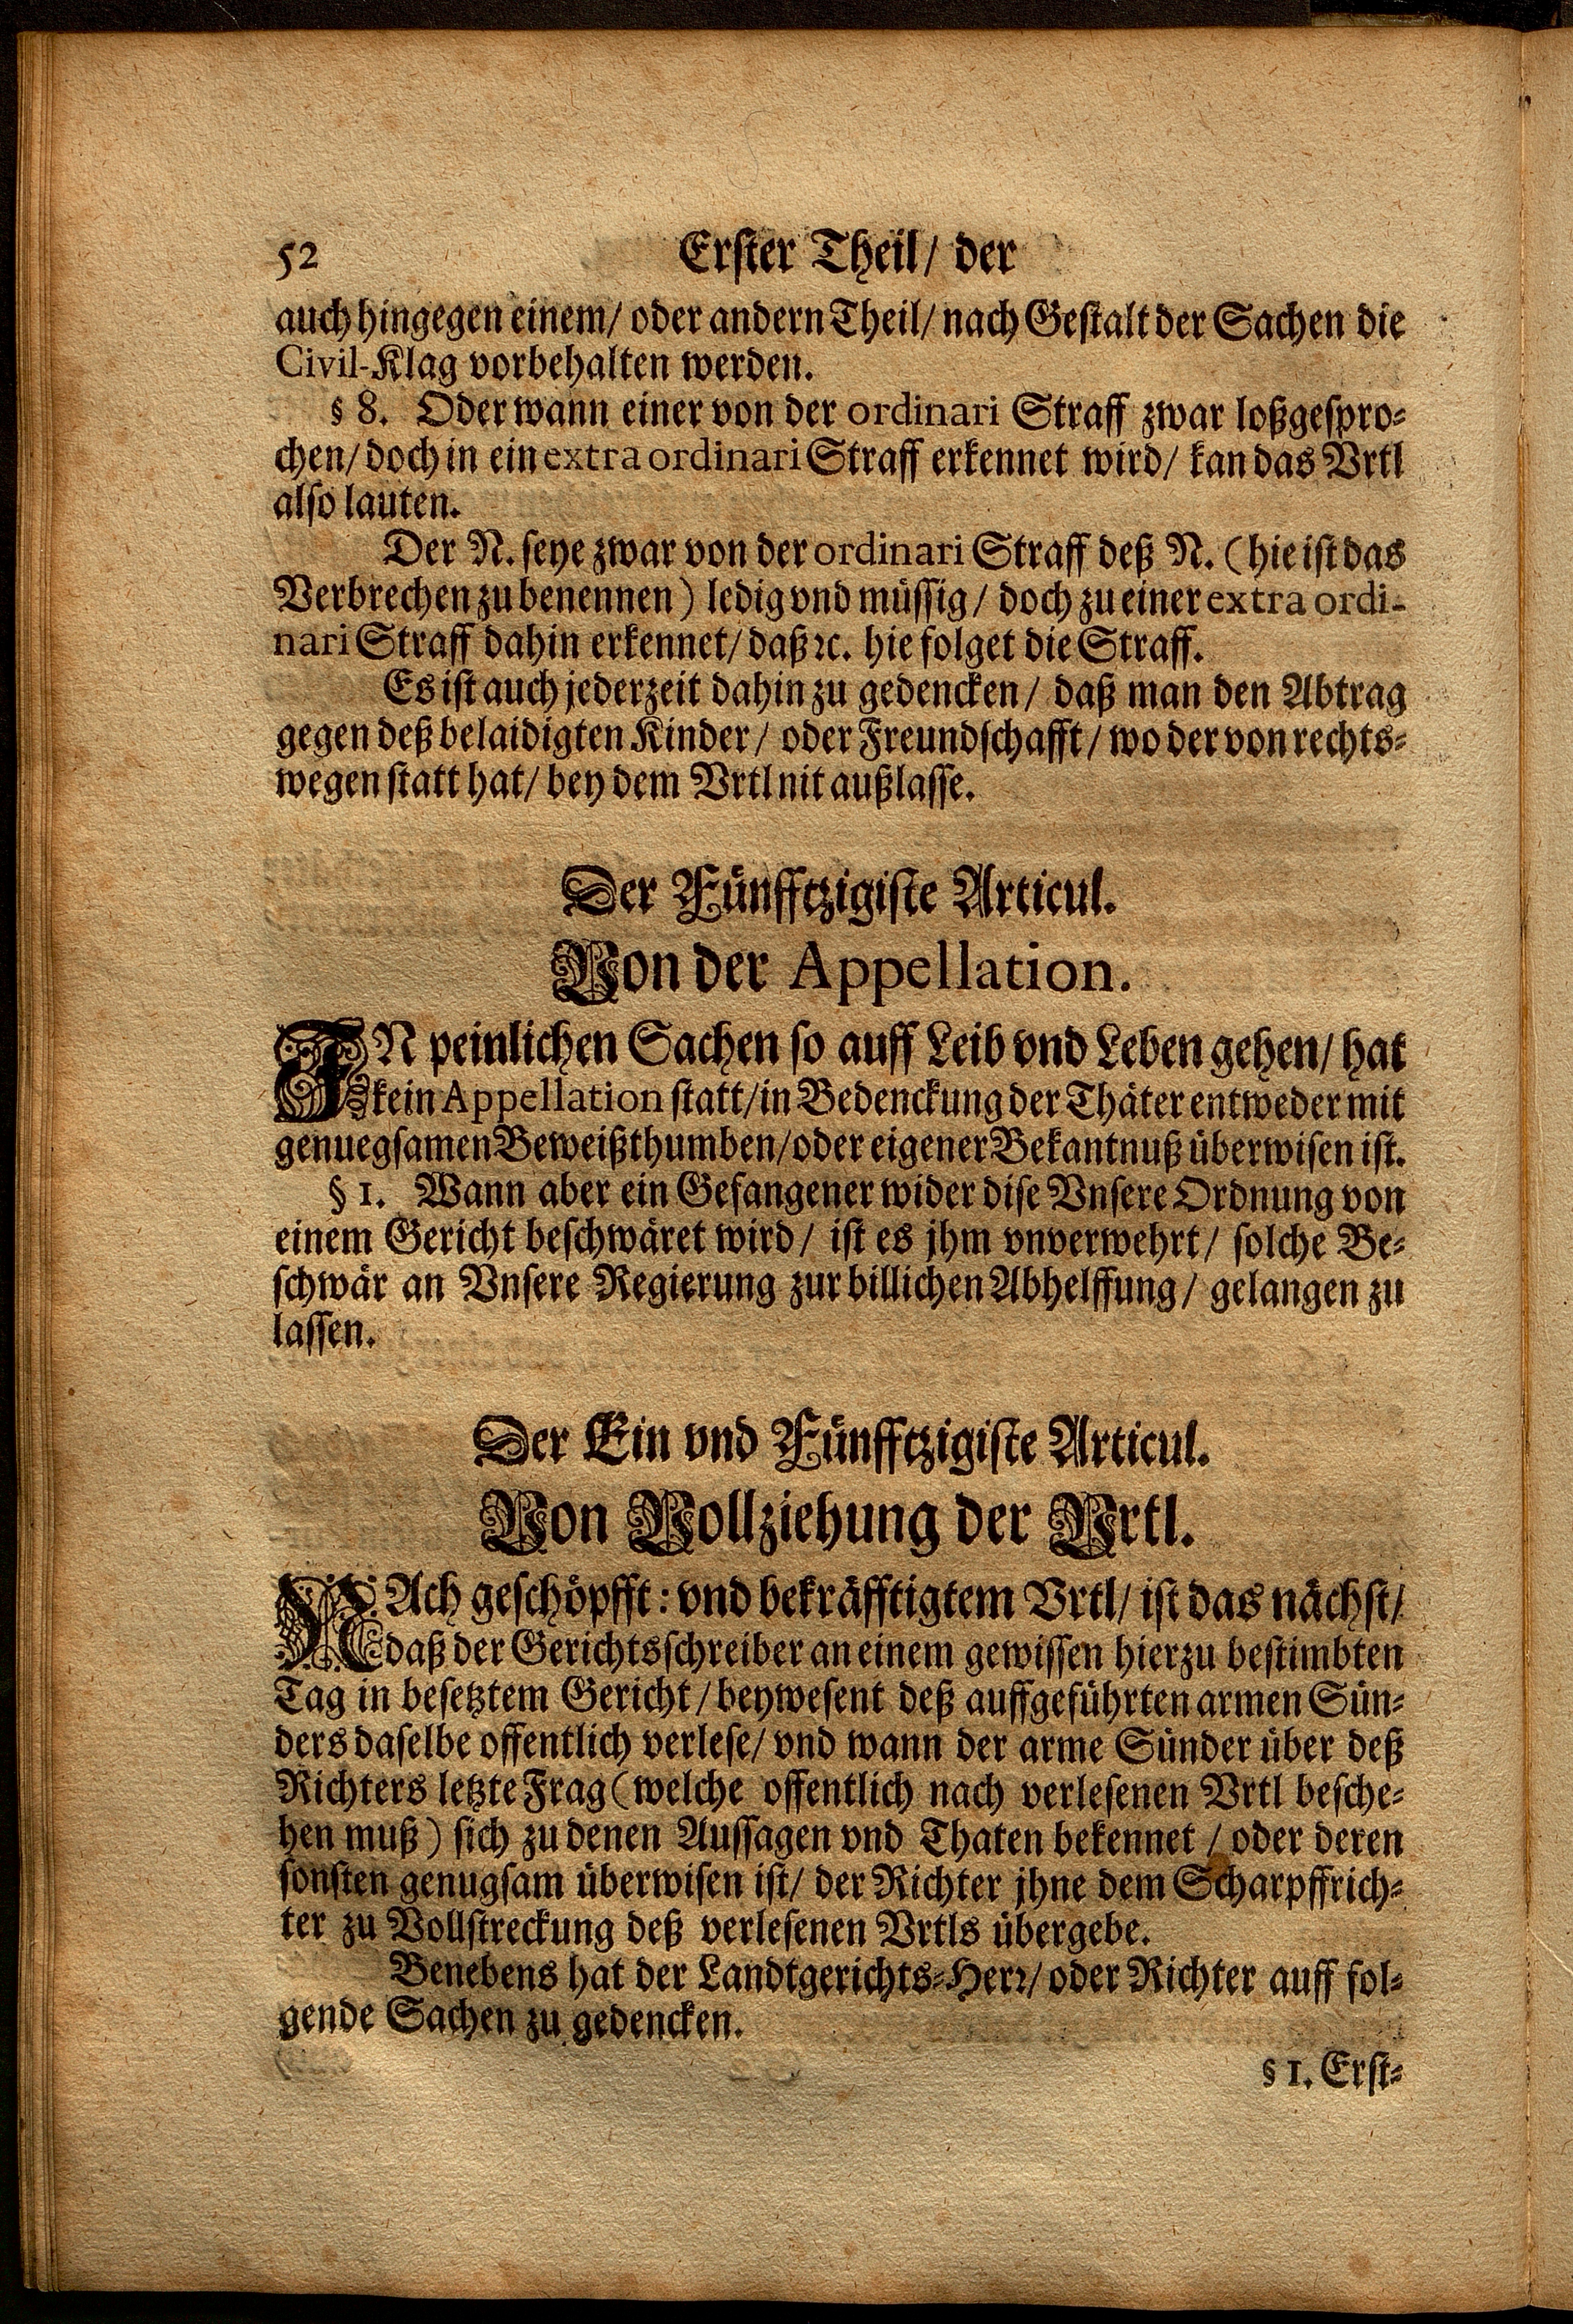 52 Erster Theil/ der
auch hingegen einem/ oder andern Theil/ nach Gestalt der Sachen die
Civil-Klag vorbehalten werden.
§ 8. Oder wann einer von der ordinari Straff zwar loßgespro-
chen/ doch in ein extra ordinari Straff erkennet wird/ kan das Vrtl
also lauten.
Der N. seye zwar von der ordinari Straff deß N. (hie ist das
Verbrechen zu benennen) ledig vnd müssig/ doch zu einer extra ordi-
nari Straff dahin erkennet/ daß ꝛc. hie folget die Straff.
Es ist auch jederzeit dahin zu gedencken/ daß man den Abtrag
gegen deß belaidigten Kinder/ oder Freundschafft/ wo der von rechts-
wegen statt hat/ bey dem Vrtl nit außlasse.
Der Fünfftzigiste Articul.
Von der Appellation.
IN peinlichen Sachen so auff Leib vnd Leben gehen/ hat
kein Appellation statt/ in Bedenckung der Thäter entweder mit
genuegsamen Beweißthumben/ oder eigener Bekantnuß überwisen ist.
§ 1. Wann aber ein Gefangener wider dise Vnsere Ordnung von
einem Gericht beschwäret wird/ ist es jhm vnverwehrt/ solche Be-
schwär an Vnsere Regierung zur billichen Abhelffung/ gelangen zu
lassen.
Der Ein vnd Fünfftzigiste Articul.
Von Vollziehung der Vrtl.
NAch geschöpfft: vnd bekräfftigtem Vrtl/ ist das nächst/
daß der Gerichtsschreiber an einem gewissen hierzu bestimbten
Tag in besetztem Gericht/ beywesent deß auffgeführten armen Sün-
ders daselbe offentlich verlese/ vnd wann der arme Sünder über deß
Richters letzte Frag (welche offentlich nach verlesenen Vrtl besche-
hen muß) sich zu denen Aussagen vnd Thaten bekennet/ oder deren
sonsten genugsam überwisen ist/ der Richter jhne dem Scharpffrich-
ter zu Vollstreckung deß verlesenen Vrtls übergebe.
Benebens hat der Landtgerichts-Herꝛ/ oder Richter auff fol-
gende Sachen zu gedencken.
§ 1. Erst-